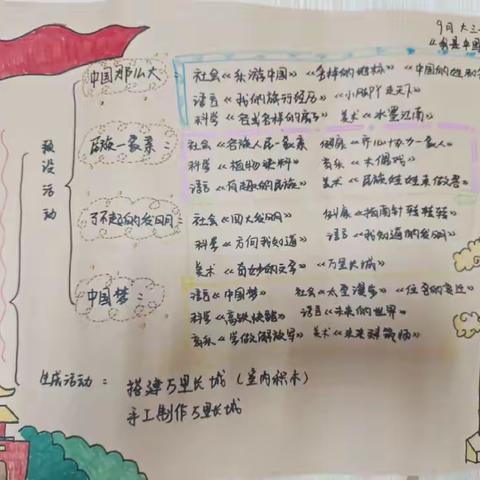 9月 大三
《我是中国
预设活动
中国那么大：
社会《乐游中国》《多样的地标》《中国的姓别
语言《我的旅行经历》《小APP走天下》
科学《各式各样的房子》 美术《水墨江南》
民族一家亲：
社会《各族人民一家亲》 健康《齐心协力一家人》
科学《植物染料》 音乐《木偶戏》
语言《有趣的民族》 美术《民族娃娃来做客》
了不起的发明：
社会《四大发明》 健康《指南针转转转》
科学《方向我知道》 语言《我知道的发明》
美术《奇妙的文字》《万里长城》
中国梦：
语言《中国梦》 社会《太空漫步》《住的变迁》
科学《高铁快跑》 语言《未来的世界》
音乐《学做解放军》 美术《未来建筑师》
生成活动：
搭建万里长城（室内积木）
手工制作万里长城